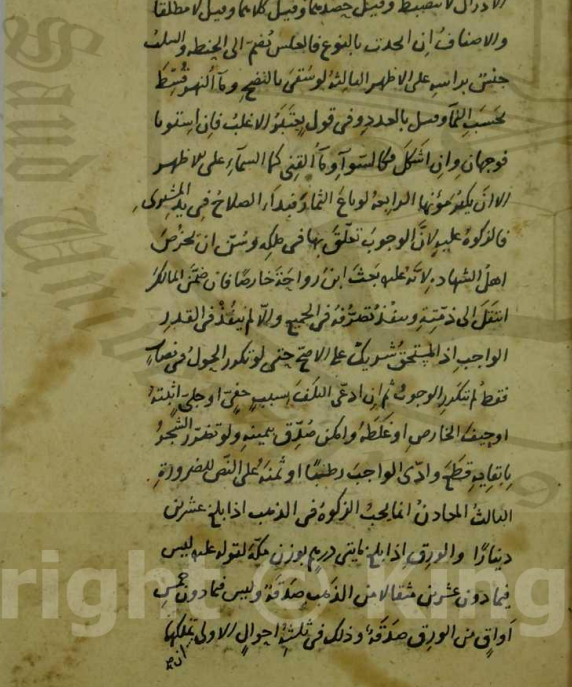 والاصناف إن اتحدت بالنوع فبالعكس تضم الى الحنطة والسلت
جنس براسه على الاظهر الثالثة لو سقى بالنضح وماء النهر قسط
بحسب النماء وقيل بالعدد وفى قول يعتبر الاغلب فإن استويا
فوجهان وإن اشكل فكالسواء وماء القنى كماء السماء على الاظهر
الا ان يكثر مؤنها الرابعة لو باع الثمار فبدأ الصلاح فى يد المشترى
فالزكوة عليه لان الوجوب تعلق بها فى ملكه وسن ان يخرص
اهل الشهادة لانه عليه بعث ابن رواحة خارصا فان ضمن المالك
انتقل الى ذمته وينفذ تصرفه فى الجميع والا لم ينفذ فى القدر
الواجب اذ المستحق شريك على الاصح حتى لو تكرر الحول فى نصاب
فقط لم يتكرر الوجوب ثم إن ادعى التلف بسبب خفى او جلى اثبته
او حيف الخارص او غلطه وامكن صدق بيمينه ولو تضرر الشجر
بابقائه قطع وادى الواجب رطبا او ثمنه على النص للضرورة
الثالث المعادن انما يجب الزكوة فى الذهب اذا بلغ عشرين
دينارا والورق إذا بلغ مايتى درهم بوزن مكة لقوله عليه ليس
فيما دون عشرين مثقالا من الذهب صدقة وليس فيما دون خمس
اواق من الورق صدقة وذلك فى ثلثة احوال الاولى تملكها
right © King